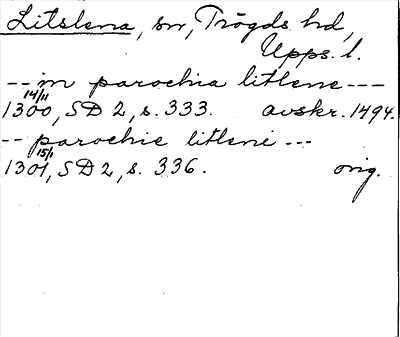 Litslena, sn, Trögds hd,
Upps. l.
-- in parochia litlene ---
14/11
1300, SD 2, s. 333. avskr. 1494.
-- parochie litleni ---
15/1
1301, SD 2, s. 336. orig.